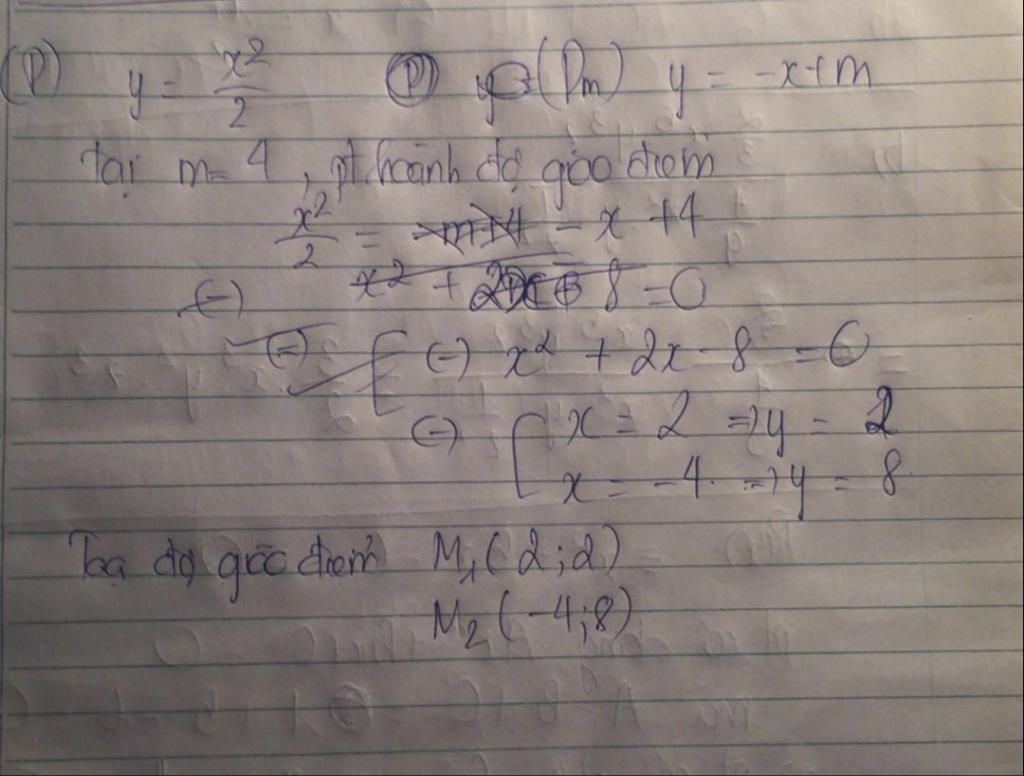 (P) y = x²/2 (Dm) y = -x+m
tại m = 4, pt hoành độ giao điểm
x²/2 = -x +4
(=) x² + 2x - 8 = 0
(=) [ x = 2 => y = 2
x = -4 => y = 8
Toạ độ giao điểm M₁(2;2)
M₂(-4;8)